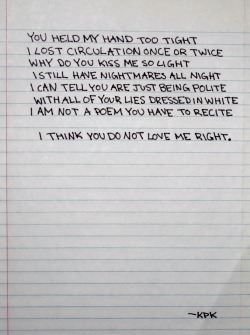 YOU HELD MY HAND TOO TIGHT
I LOST CIRCULATION ONCE OR TWICE
WHY DO YOU KISS ME SO LIGHT
I STILL HAVE NIGHTMARES ALL NIGHT
I CAN TELL YOU ARE JUST BEING POLITE
WITH ALL OF YOUR LIES DRESSED IN WHITE
I AM NOT A POEM YOU HAVE TO RECITE
I THINK YOU DO NOT LOVE ME RIGHT.
~KPK